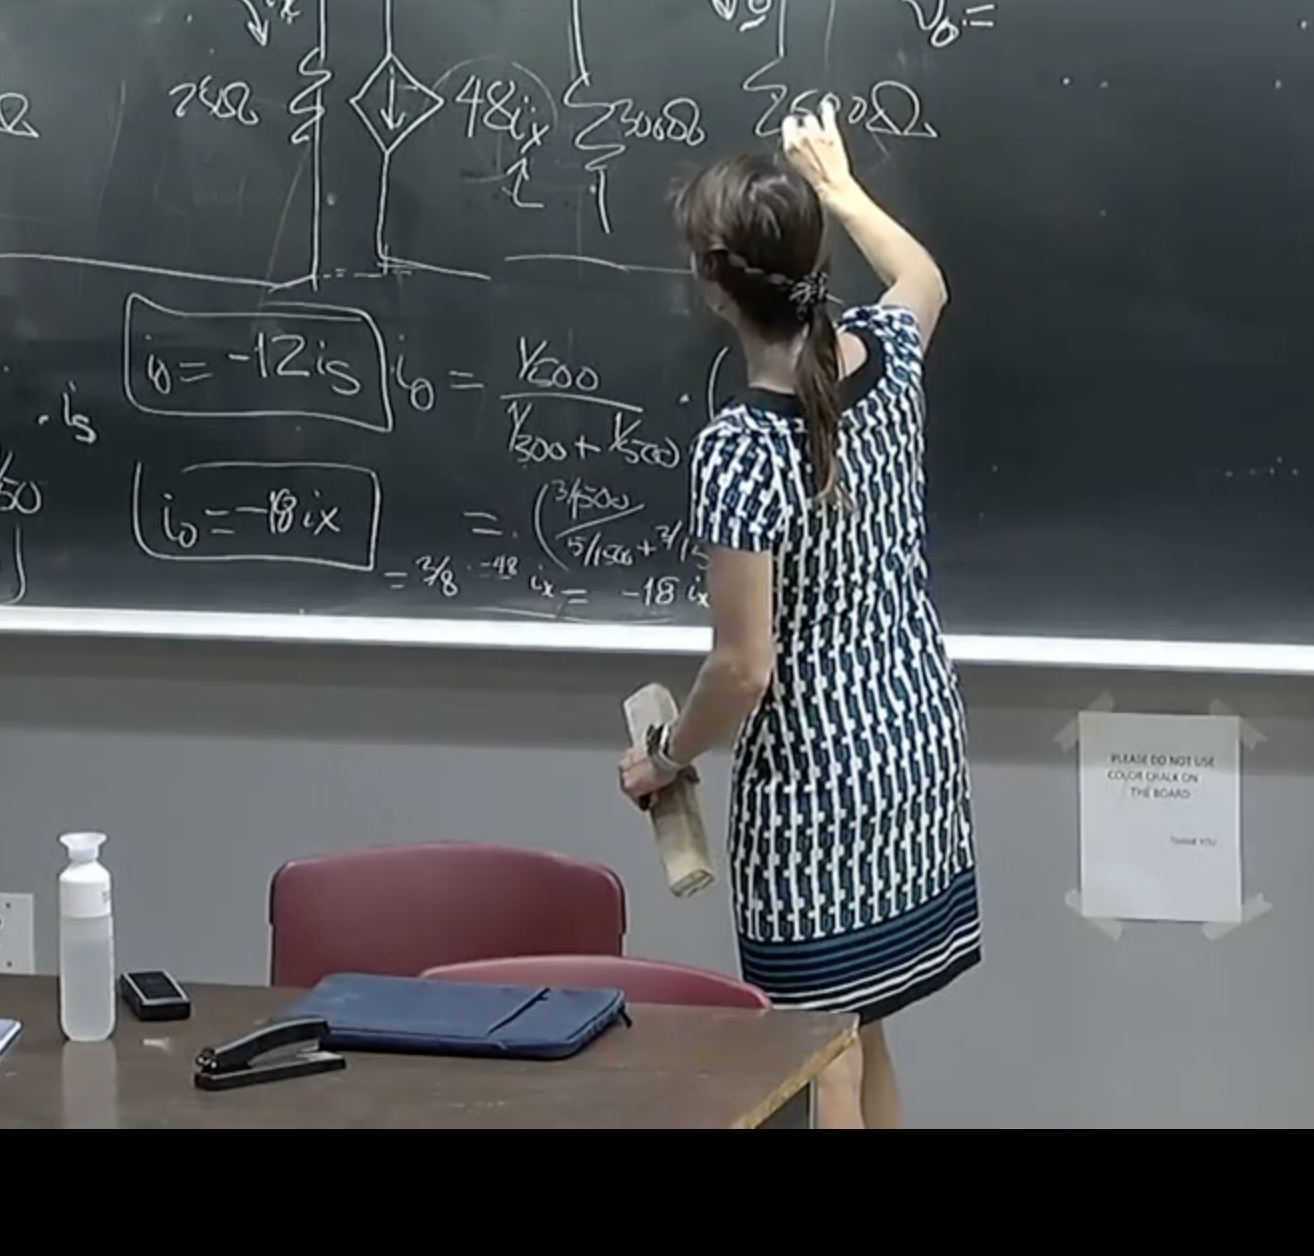 Vo=
25Ω 48ix 300Ω 500Ω
io = -12is
io = 1/500 / 1/300 + 1/500 · (
· is
/50
io = -18ix
= (3/1500 / 5/1500 + 3/15
= 3/8 · -48 ix = -18 ix
PLEASE DO NOT USE
COLOR CHALK ON
THE BOARD
THANK YOU